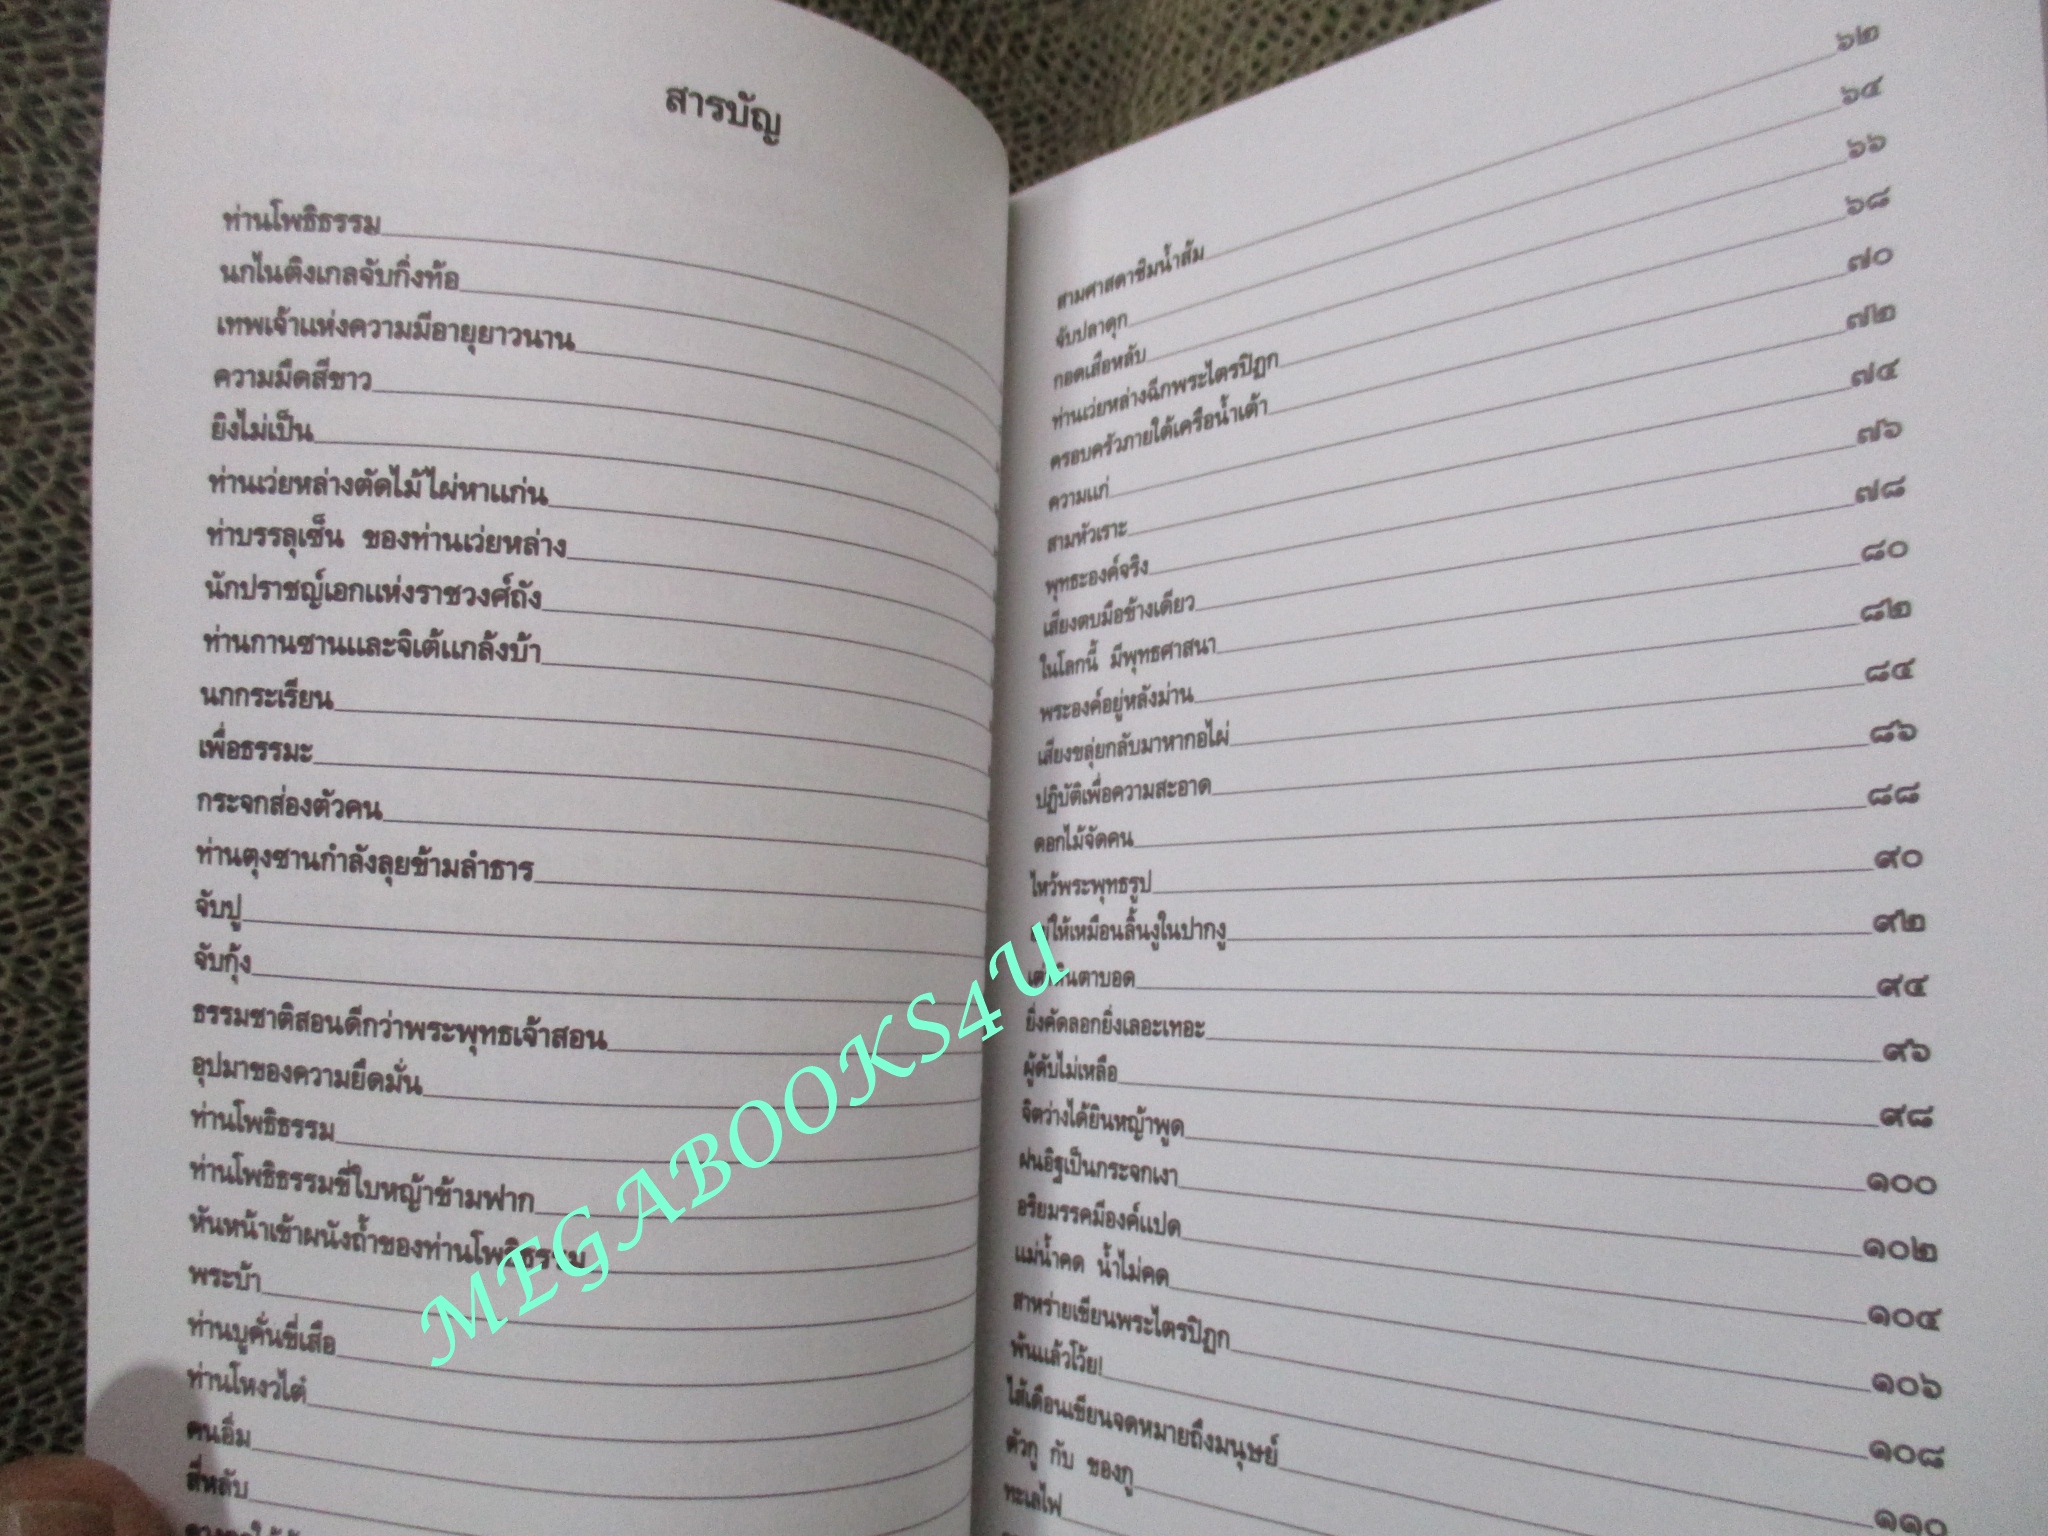 สารบัญ
ท่านโพธิธรรม
นกไนติงเกลจับกิ่งท้อ
เทพเจ้าแห่งความมีอายุยาวนาน
ความมืดสีขาว
ยิงไม่เป็น
ท่านเว่ยหล่างตัดไม้ไผ่หาแก่น
ท่าบรรลุเซ็น ของท่านเว่ยหล่าง
นักปราชญ์เอกแห่งราชวงศ์ถัง
ท่านกานซานและจิเต้แกล้งบ้า
นกกระเรียน
เพื่อธรรมะ
กระจกส่องตัวคน
ท่านตุงซานกำลังลุยข้ามลำธาร
จับปู
จับกุ้ง
ธรรมชาติสอนดีกว่าพระพุทธเจ้าสอน
อุปมาของความยึดมั่น
ท่านโพธิธรรม
ท่านโพธิธรรมขี่ใบหญ้าข้ามฟาก
หันหน้าเข้าผนังถ้ำของท่านโพธิธรรม
พระบ้า
ท่านบูคั่นขี่เสือ
ท่านโหงวไต๋
คนอิ่ม
สี่หลับ
สามศาสดาชิมน้ำส้ม ๖๒
จับปลาดุก ๖๔
กอดเสือหลับ ๖๖
ท่านเว่ยหล่างฉีกพระไตรปิฎก ๖๘
ครอบครัวภายใต้เครือน้ำเต้า ๗๐
ความแก่ ๗๒
สามหัวเราะ ๗๔
พุทธะองค์จริง ๗๖
เสียงตบมือข้างเดียว ๗๘
ในโลกนี้ มีพุทธศาสนา ๘๐
พระองค์อยู่หลังม่าน ๘๒
เสียงขลุ่ยกลับมาหากอไผ่ ๘๔
ปฏิบัติเพื่อความสะอาด ๘๖
ดอกไม้จัดคน ๘๘
ไหว้พระพุทธรูป ๙๐
ให้เหมือนลิ้นงูในปากงู ๙๒
ตาบอด ๙๔
ยิ่งคัดลอกยิ่งเลอะเทอะ ๙๖
ผู้ดับไม่เหลือ ๙๘
จิตว่างได้ยินหญ้าพูด ๑๐๐
ฝนอิฐเป็นกระจกเงา ๑๐๒
อริยมรรคมีองค์แปด ๑๐๔
แม่น้ำคด น้ำไม่คด ๑๐๖
สาหร่ายเขียนพระไตรปิฎก ๑๐๘
พ้นแล้วโว้ย! ๑๑๐
ไส้เดือนเขียนจดหมายถึงมนุษย์
ตัวกู กับ ของกู
ทะเลไฟ
MEGABOOKS4U